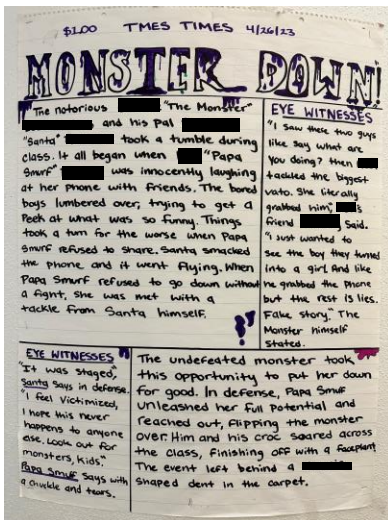 $1.00 TMES TIMES 4/26/23
MONSTER DOWN!
"The notorious "The Monster"
and his pal
"Santa" took a tumble during
class. It all began when "Papa
Smurf" was innocently laughing
at her phone with friends. The bored
boys lumbered over, trying to get a
Peek at what was so funny. Things
took a turn for the worse when Papa
Smurf refused to share. Santa smacked
the phone and it went flying. When
Papa Smurf refused to go down without
a fight, she was met with a
tackle from Santa himself.
EYE WITNESSES
"I saw these two guys
like say what are
you doing? then
tackled the biggest
vato. She literally
grabbed him, 's
friend said.
"I just wanted to
see the boy they turned
into a girl And like
he grabbed the phone
but the rest is lies.
Fake story." The
Monster himself
stated.
EYE WITNESSES
"It was staged",
Santa says in defense.
"I feel victimized,
I hope this never
happens to anyone
else. Look out for
monsters, kids."
Papa Smurf says with
a chuckle and tears.
The undefeated monster took
this opportunity to put her down
for good. In defense, Papa Smurf
unleashed her full potential and
reached out, flipping the monster
over. Him and his croc soared across
the class, finishing off with a faceplant
The event left behind a
shaped dent in the carpet.